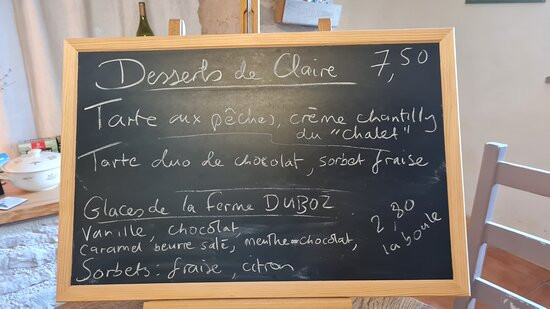 Desserts de Claire 7,50
Tarte aux pêches, crème chantilly
du "chalet"
Tarte duo de chocolat, sorbet fraise
Glaces de la ferme DUBOZ
Vanille, chocolat,
caramel beurre salé, menthe-chocolat,
2,80
la boule
Sorbets: fraise, citron